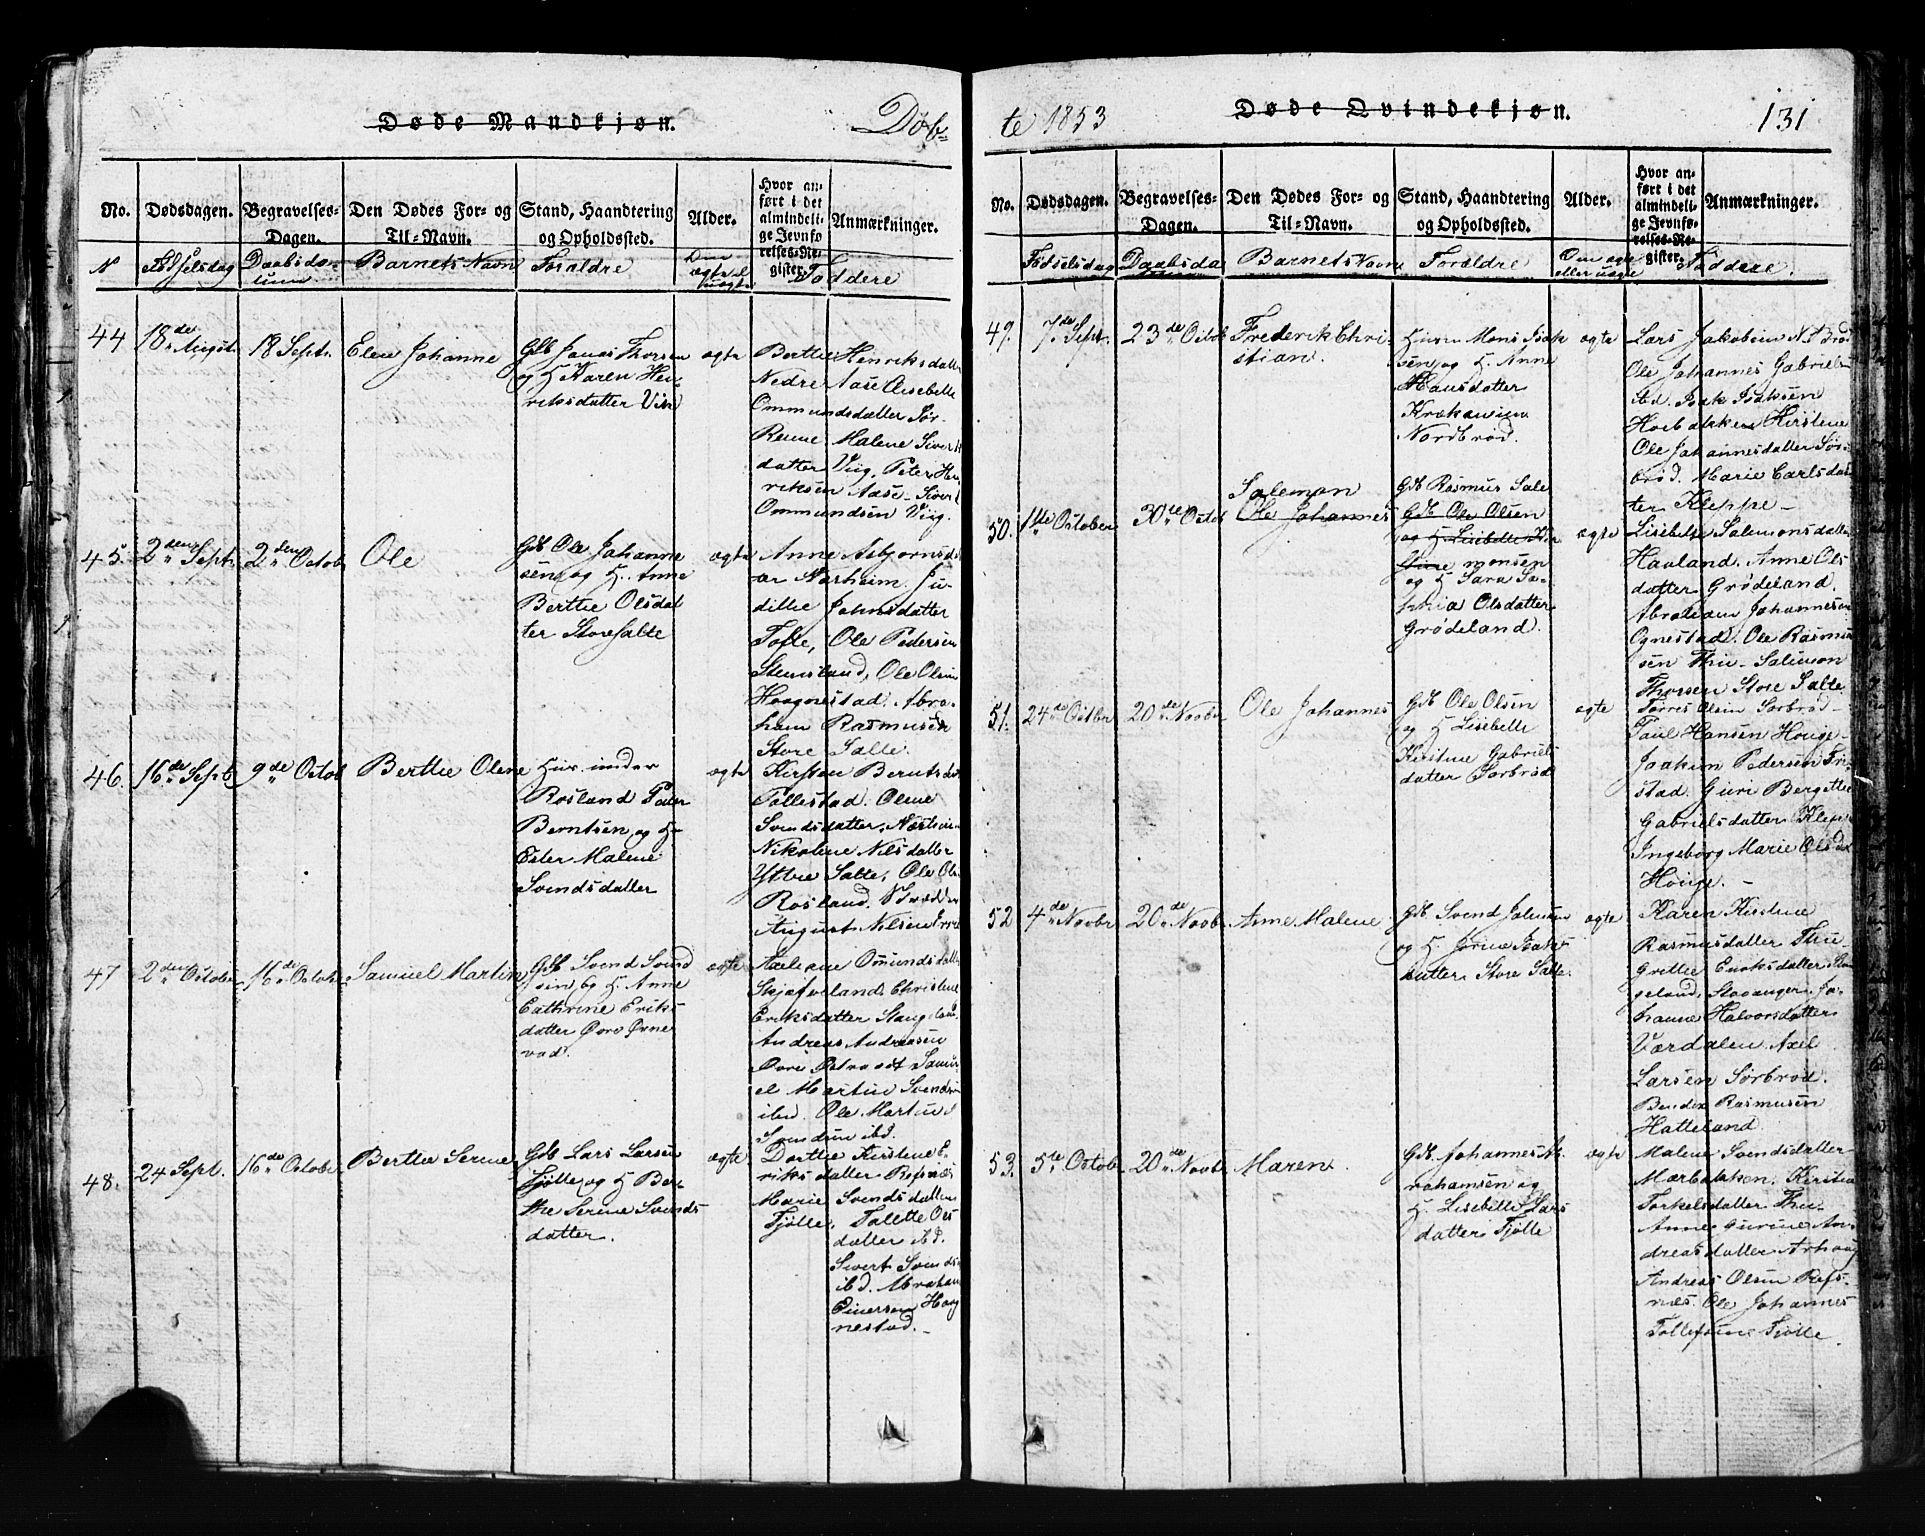 Døde Mandkjøn.
Døb-
No.
Dødsdagen.
Begravelses-
Dagen.
Den Dødes For- og
Til-Navn.
Stand, Haandtering
og Opholdssted.
Alder.
Hvor an-
ført i det
almindeli-
ge Jevnfø-
relses-Re-
gister.
Anmærkninger.
N
Fødselsdag
Daabsda-
tum
Barnets Navn
Foræld​re
Om
ægte el
uægte
Faddere
44
18de August
18 Sept.
Elen Johanne
Gdb Jonas Thorsen
og H Karen Hen-
riksdatter Viig
ægte
Berthe Henriksdatter
Nedre Aase Elisebette
Ommundsdatter Sør
Reime Malene Siverts
datter Viig, Peter Hen
riksen Aase, Sivert
Ommundsen Viig.
45.
2den Sept.
2den Octob
Ole
Gdb Ole Johanne
sen og H. Anne
Berthe Olsdat
ter Store Salte
ægte
Anne Asbjørnsdat
ter Nærheim. Ju-
dithe Johnsdatter
Tofte, Ole Pedersen
Stemsland, Ole Olsen
Hoognestad. Abra-
ham Rasmusen
Store Salte.
46.
16de Sept.
9de Octob
Berthe Olene
Huus. under
Rosland Peder
Berntsen og H
Ester Malene
Svendsdatter
ægte
Kirsten Berntsdat
Tollestad. Olene
Svendsdatter, Næsheim
Nikoline Nilsdatter
Ythre Salte, Ole Ols
Rosland.
August Nilsen
47
2den October
16de Octob.
Samuel Martin
Gdb Svend Svend
sen og H. Anne
Cathrine Eriks
datter Øvre Øvne
vad.
ægte
Omundsdatter
Skjæveland. Christine
Eriksdatter Stangeland
Andreas Andreasen
Øvre Samu-
el Martin Svendsen
ibd. Ole Martin
Svendsen ibd.
48.
24 Sept.
16de October
Berthe Serine
Gdb Lars Larsen
Tjøtte og H Ber
the Serine Svends
datter.
ægte
Dorthe Kirstene E-
riksdatter Refsnæs
Marie Svendsdatter
Tjøtte, Talette Ols
datter ibd.
Sivert Svends
ibd. Abraham
Einersen Haag
nestad.
te 1853
Døde Qvindekjøn.
131
No.
Dødsdagen.
Begravelses-
Dagen.
Den Dødes For- og
Til-Navn.
Stand, Haandtering
og Opholdssted.
Alder.
Hvor an-
ført i det
almindeli-
ge Jevnfø-
relses-Re-
gister.
Anmærkninger.
Fødselsdag
Daabsda
Barnets Navn
Forældre
Om ægte
eller uægte
Faddere.
49.
7de Sept.
23de Octob
Frederik Chri-
stian.
Huusm Mons Isak
sen og H. Anne
Hansdatter
Krækanien
Nordbrød.
ægte
Lars Jakobsen N. Brød
Ole Johannes Gabriels
Sød. Isak Isaksen
Hoebakken Kirstene
Ole Johannesdatter Sør
brød. Marie Carlsdat
ter Kleppe
50.
1ste October
30te Octob
Salemon
Ole Johannes
Gdb Rasmus Sale
Gdb Ole Olsen
og H Lisebette Kir
stine monsen
og H Sara So-
phia Olsdatter
Grødeland.
ægte
Lisebette Salemonsdatter
Havland. Anne Ols
datter Grødeland.
Abraham Johannesen
Ognestad. Ole Rasmus
sen Thu. Salemon
Thorsen Store Salte
51.
24de Octbr
20de Novbr
Ole Johannes
Gdb Ole Olsen
og H Lisebette
Kirstine Gabriels
datter Sørbrød
ægte
Torres Olsen Sørbrød
Paul Hansen Houge
Joakim Pedersen Fri-
stad. Guri Bergette
Gabrielsdatter Klep
Ingeborg Marie Olsdat
Houge.
52
4de Novbr
20de Novb.
Anne Malene
Gdb Svend Johnsen
og H. Jorine Isaks
datter Store Salte.
ægte
Karen Kirstine
Rasmusdatter Thu
Grethe Eriksdatter Stan
geland, Stavanger. Jo-
hanne Halvorsdatter
Værdalen. Axel
Larsen Sørbrød.
Bendix Rasmusen
Hatteland.
53.
5te Octob
20de Novb.
Maren
Gdb. Johannes Ab
rahamsen og
H. Lisebette Lars
datter Tjøtte
ægte
Malene Svendsdatter
Mærbakken. Kirstine
Torkelsdatter Thu.
Anne Gurine An-
dreasdatter Arhoug
Andreas Olsen Refs-
næs. Ole Johannes
Tollefsen Tjøtte.